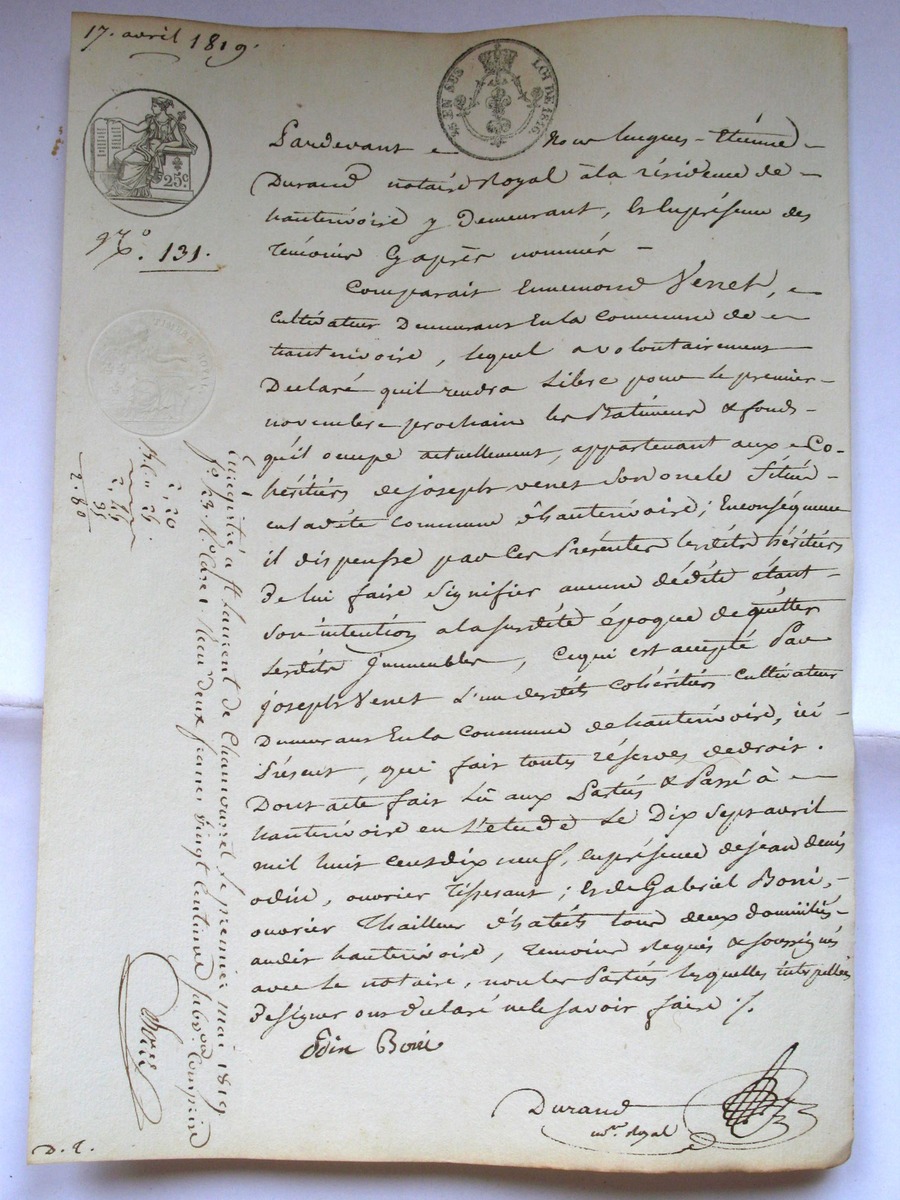 17. avril 1819.
¼ EN SUS LOI DE 1816.
25c.
Nº. 131.
TIMBRE ROYAL
Pardevant Nous hugues-Etienne
Durand notaire Royal à la résidence de
hauterivoire y Demeurant, & en présence des
témoins Cy après nommés
Comparait Ennemond Venet,
Cultivateur Demeurant En la Commune de
hauterivoire, lequel a volontairement
Declaré qu'il rendra Libre pour le premier
novembre prochain les Batimens & fonds
qu'il ocupe actuellement, appartenant aux Co-
héritiers de joseph venet son oncle Situés
en la dite Commune d'hauterivoire; En conséquence
il dispensse par Ces Présentes lesdits héritiers
De lui faire signifier aucune dédite étant
son intention a la susdite époque de quitter
lesdits jmmeubles, Ce qui est accepté Par
joseph Venet L'un desdits cohéritiers Cultivateur
Demeurant En la Commune de hauterivoire, ici
Présent, qui fait toutes réserves de droit.
Dont acte fait Lu aux Parties & Passé à
hauterivoire en L'etude Le Dix Sept avril
mil huit cent dix neuf, en présence de jean denis
odin, ouvrier Tisserant; & de Gabriel Boni,
ouvrier Thailleur d'habits tous deux domiciliés
audit hauterivoire, témoins Requis & soussignés
avec le notaire, non les Parties lesquelles interpellées
De signer ont Declaré ne le savoir faire ./.
Odin Boni
Durand
nre. Royal
Enregistré a St. Laurent de Chamousset le premier mai 1819
fo. 23 Ro. Case 1 Reçu deux francs vingt Centimes
2, 20
2, 25
35
2. 80
D. t.